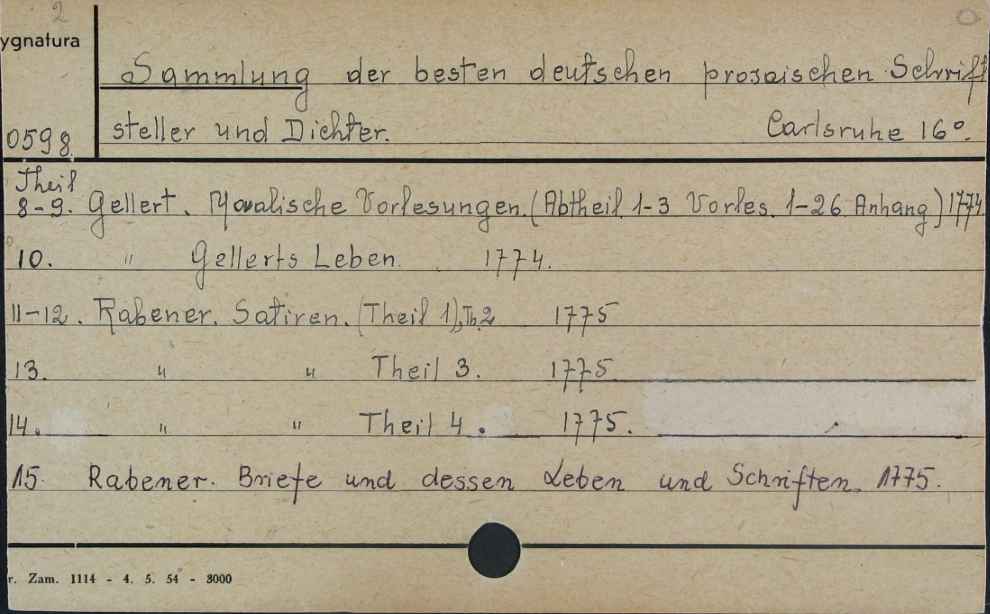 2
ygnatura
Sammlung der besten deutschen prosaischen Schrift
0598. steller und Dichter. Carlsruhe 16°.
Theil
8-9. Gellert. Moralische Vorlesungen. (Abtheil 1-3 Vorles. 1-26 Anhang) 1774
10. " Gellerts Leben. 1774.
11-12. Rabener. Satiren. (Theil 1), Th. 2 1775
13. " " Theil 3. 1775
14. " " Theil 4. 1775.
15. Rabener. Briefe und dessen Leben und Schriften. 1775.
r. Zam. 1114 - 4. 5. 54 - 3000